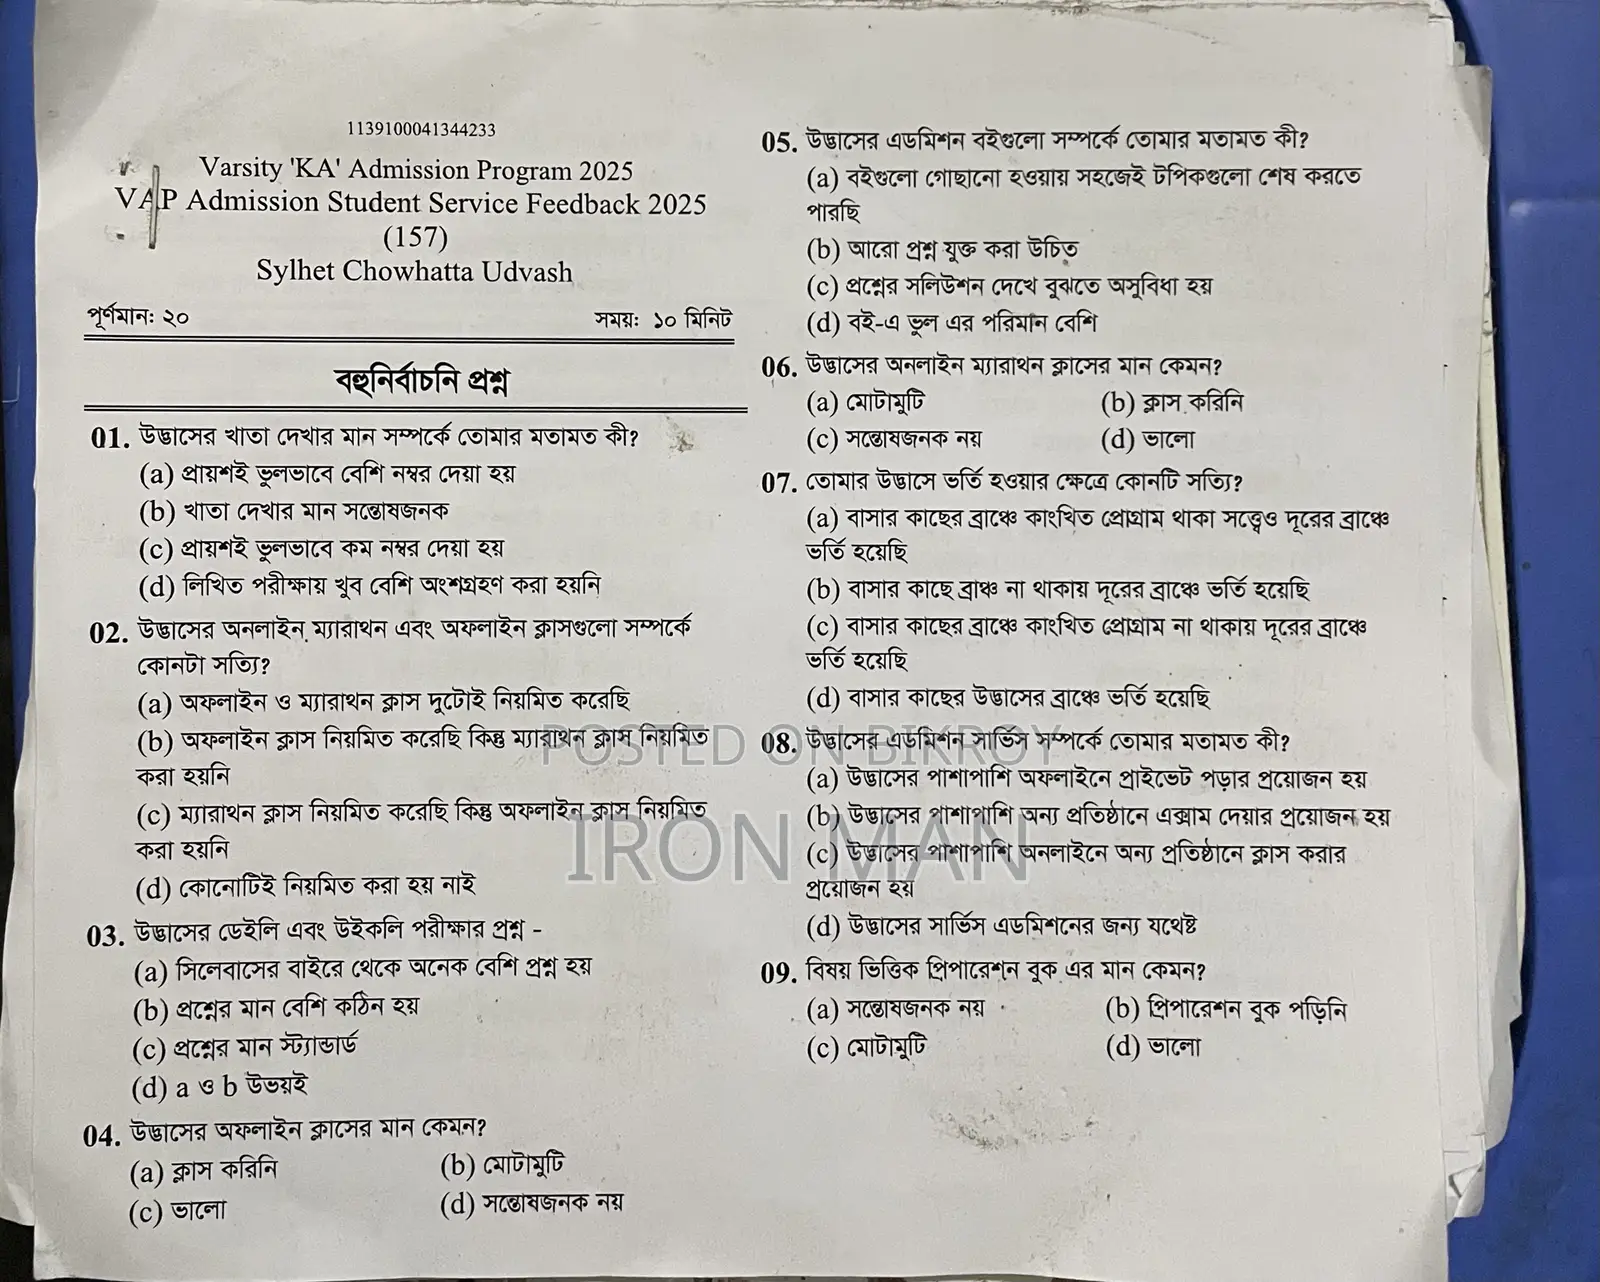 1139100041344233
Varsity 'KA' Admission Program 2025
VAP Admission Student Service Feedback 2025
(157)
Sylhet Chowhatta Udvash
পূর্ণমান: ২০ সময়: ১০ মিনিট
বহুনির্বাচনি প্রশ্ন
01. উদ্ভাসের খাতা দেখার মান সম্পর্কে তোমার মতামত কী?
(a) প্রায়শই ভুলভাবে বেশি নম্বর দেয়া হয়
(b) খাতা দেখার মান সন্তোষজনক
(c) প্রায়শই ভুলভাবে কম নম্বর দেয়া হয়
(d) লিখিত পরীক্ষায় খুব বেশি অংশগ্রহণ করা হয়নি
02. উদ্ভাসের অনলাইন ম্যারাথন এবং অফলাইন ক্লাসগুলো সম্পর্কে
কোনটা সত্যি?
(a) অফলাইন ও ম্যারাথন ক্লাস দুটোই নিয়মিত করেছি
(b) অফলাইন ক্লাস নিয়মিত করেছি কিন্তু ম্যারাথন ক্লাস নিয়মিত
করা হয়নি
(c) ম্যারাথন ক্লাস নিয়মিত করেছি কিন্তু অফলাইন ক্লাস নিয়মিত
করা হয়নি
(d) কোনোটিই নিয়মিত করা হয় নাই
03. উদ্ভাসের ডেইলি এবং উইকলি পরীক্ষার প্রশ্ন -
(a) সিলেবাসের বাইরে থেকে অনেক বেশি প্রশ্ন হয়
(b) প্রশ্নের মান বেশি কঠিন হয়
(c) প্রশ্নের মান স্ট্যান্ডার্ড
(d) a ও b উভয়ই
04. উদ্ভাসের অফলাইন ক্লাসের মান কেমন?
(a) ক্লাস করিনি (b) মোটামুটি
(c) ভালো (d) সন্তোষজনক নয়
05. উদ্ভাসের এডমিশন বইগুলো সম্পর্কে তোমার মতামত কী?
(a) বইগুলো গোছানো হওয়ায় সহজেই টপিকগুলো শেষ করতে
পারছি
(b) আরো প্রশ্ন যুক্ত করা উচিত
(c) প্রশ্নের সলিউশন দেখে বুঝতে অসুবিধা হয়
(d) বই-এ ভুল এর পরিমান বেশি
06. উদ্ভাসের অনলাইন ম্যারাথন ক্লাসের মান কেমন?
(a) মোটামুটি (b) ক্লাস করিনি
(c) সন্তোষজনক নয় (d) ভালো
07. তোমার উদ্ভাসে ভর্তি হওয়ার ক্ষেত্রে কোনটি সত্যি?
(a) বাসার কাছের ব্রাঞ্চে কাংখিত প্রোগ্রাম থাকা সত্ত্বেও দূরের ব্রাঞ্চে
ভর্তি হয়েছি
(b) বাসার কাছে ব্রাঞ্চ না থাকায় দূরের ব্রাঞ্চে ভর্তি হয়েছি
(c) বাসার কাছের ব্রাঞ্চে কাংখিত প্রোগ্রাম না থাকায় দূরের ব্রাঞ্চে
ভর্তি হয়েছি
(d) বাসার কাছের উদ্ভাসের ব্রাঞ্চে ভর্তি হয়েছি
08. উদ্ভাসের এডমিশন সার্ভিস সম্পর্কে তোমার মতামত কী?
(a) উদ্ভাসের পাশাপাশি অফলাইনে প্রাইভেট পড়ার প্রয়োজন হয়
(b) উদ্ভাসের পাশাপাশি অন্য প্রতিষ্ঠানে এক্সাম দেয়ার প্রয়োজন হয়
(c) উদ্ভাসের পাশাপাশি অনলাইনে অন্য প্রতিষ্ঠানে ক্লাস করার
প্রয়োজন হয়
(d) উদ্ভাসের সার্ভিস এডমিশনের জন্য যথেষ্ট
09. বিষয় ভিত্তিক প্রিপারেশন বুক এর মান কেমন?
(a) সন্তোষজনক নয় (b) প্রিপারেশন বুক পড়িনি
(c) মোটামুটি (d) ভালো
POSTED ON BIKROY
IRON MAN